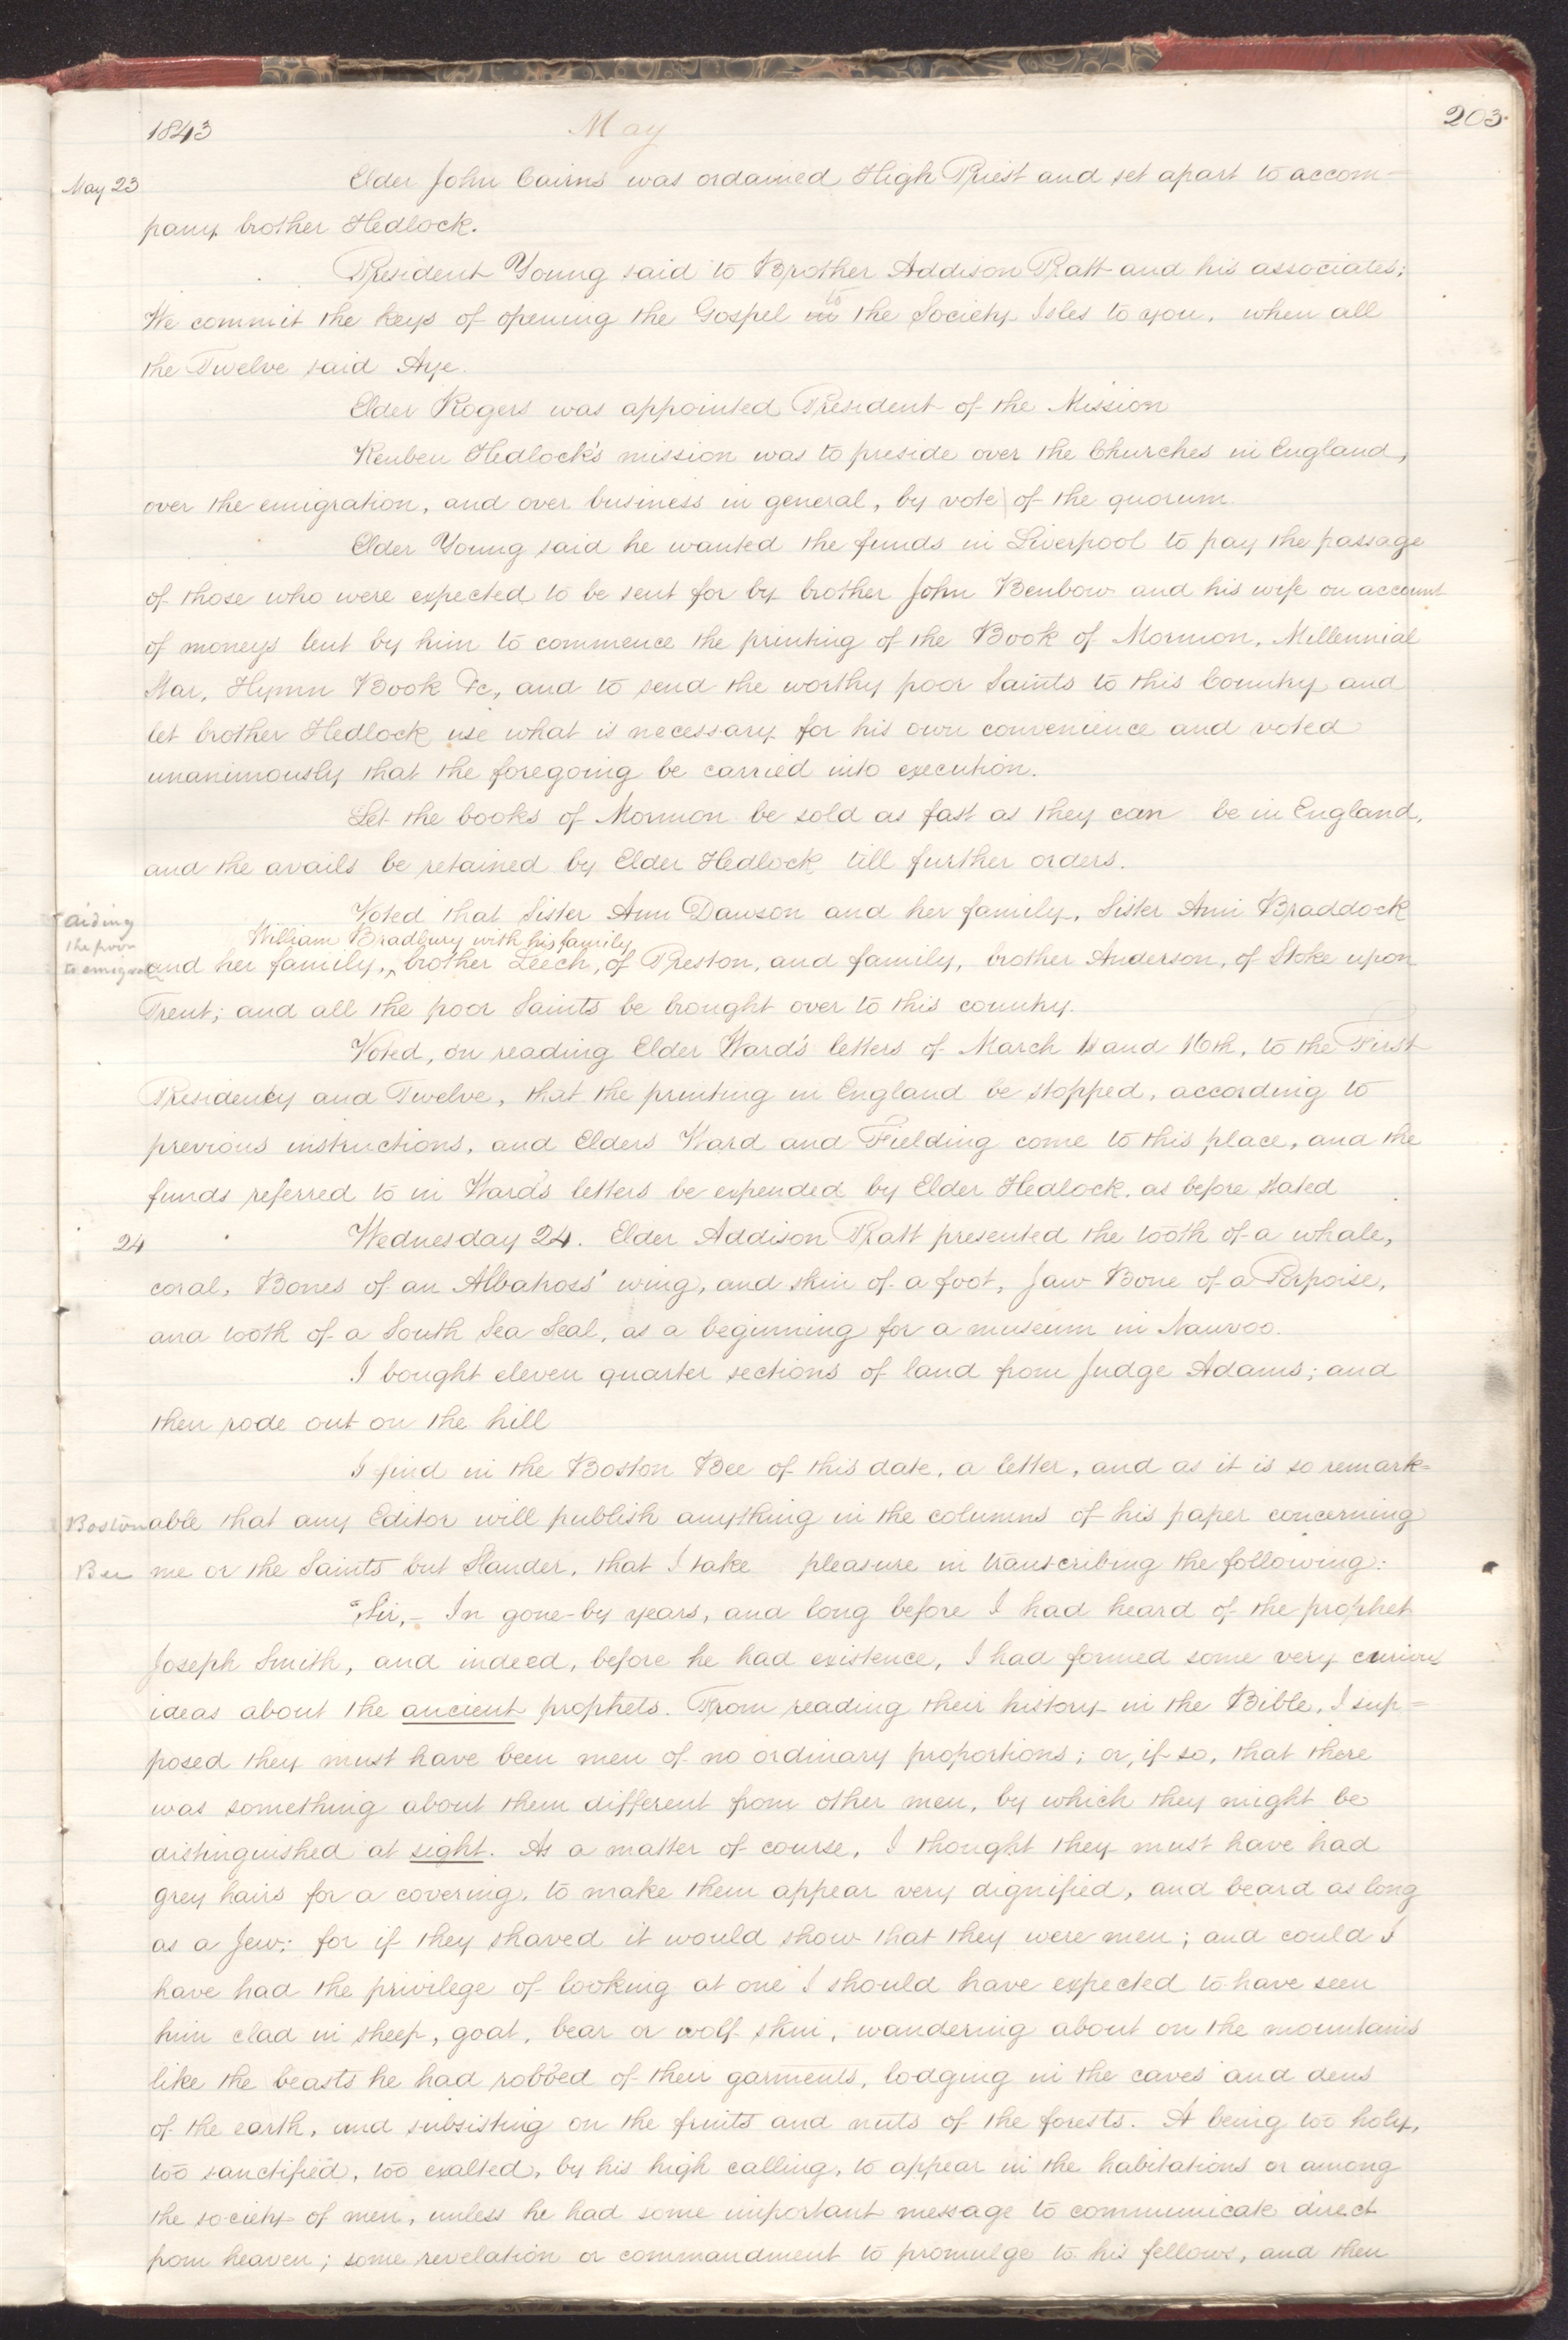 203.
1843 May
May 23 Elder John Cairns was ordained High Priest and set apart to accom=
pany brother Hedlock.
President Young said to Brother Addison Pratt and his associates;
to
We commit the keys of opening the Gospel in the Society Isles to you, when all
the Twelve said Aye.
Elder Rogers was appointed President of the Mission
Reuben Hedlock's mission was to preside over the Churches in England,
over the emigration, and over business in general, by vote of the quorum.
Elder Young said he wanted the funds in Liverpool to pay the passage
of those who were expected to be sent for by brother John Benbow and his wife on account
of moneys lent by him to commence the printing of the Book of Mormon, Millennial
Star, Hymn Book &c, and to send the worthy poor Saints to this Country and
let brother Hedlock use what is necessary for his own convenience and voted
unanimously that the foregoing be carried into execution.
Let the books of Mormon be sold as fast as they can be in England,
and the avails be retained by Elder Hedlock till further orders.
Voted that Sister Ann Dawson and her family, Sister Ann Braddock
aiding
the poor
to emigrate
William Bradbury with his family
and her family, ^ brother Leech, of Preston, and family, brother Anderson, of Stoke upon
Trent; and all the poor Saints be brought over to this country.
Voted, on reading Elder Ward's letters of March and 16th, to the First
Presidency and Twelve, that the printing in England be stopped, according to
previous instructions, and Elders Ward and Fielding come to this place, and the
funds referred to in Ward's letters be expended by Elder Hedlock, as before stated
24 Wednesday 24. Elder Addison Pratt presented the tooth of a whale,
coral, Bones of an Albatross' wing, and skin of a foot, Jaw Bone of a Porpoise,
and tooth of a South Sea Seal, as a beginning for a museum in Nauvoo.
I bought eleven quarter sections of land from Judge Adams; and
then rode out on the hill
I find in the Boston Bee of this date, a letter, and as it is so remark=
Boston
able that any Editor will publish anything in the columns of his paper concerning
Bee
me or the Saints but Slander, that I take pleasure in transcribing the following:
"Sir,– In gone-by years, and long before I had heard of the prophet
Joseph Smith, and indeed, before he had existence, I had formed some very curious
ideas about the ancient prophets. From reading their history in the Bible, I sup=
posed they must have been men of no ordinary proportions; or, if so, that there
was something about them different from other men, by which they might be
distinguished at sight. As a matter of course, I thought they must have had
grey hairs for a covering, to make them appear very dignified, and beard as long
as a Jew; for if they shaved it would show that they were men; and could I
have had the privilege of looking at one I should have expected to have seen
him clad in sheep, goat, bear or wolf skin, wandering about on the mountains
like the beasts he had robbed of their garments, lodging in the caves and dens
of the earth, and subsisting on the fruits and nuts of the forests. A being too holy,
too sanctified, too exalted, by his high calling, to appear in the habitations or among
the society of men, unless he had some important message to communicate direct
from heaven; some revelation or commandment to promulge to his fellows, and then